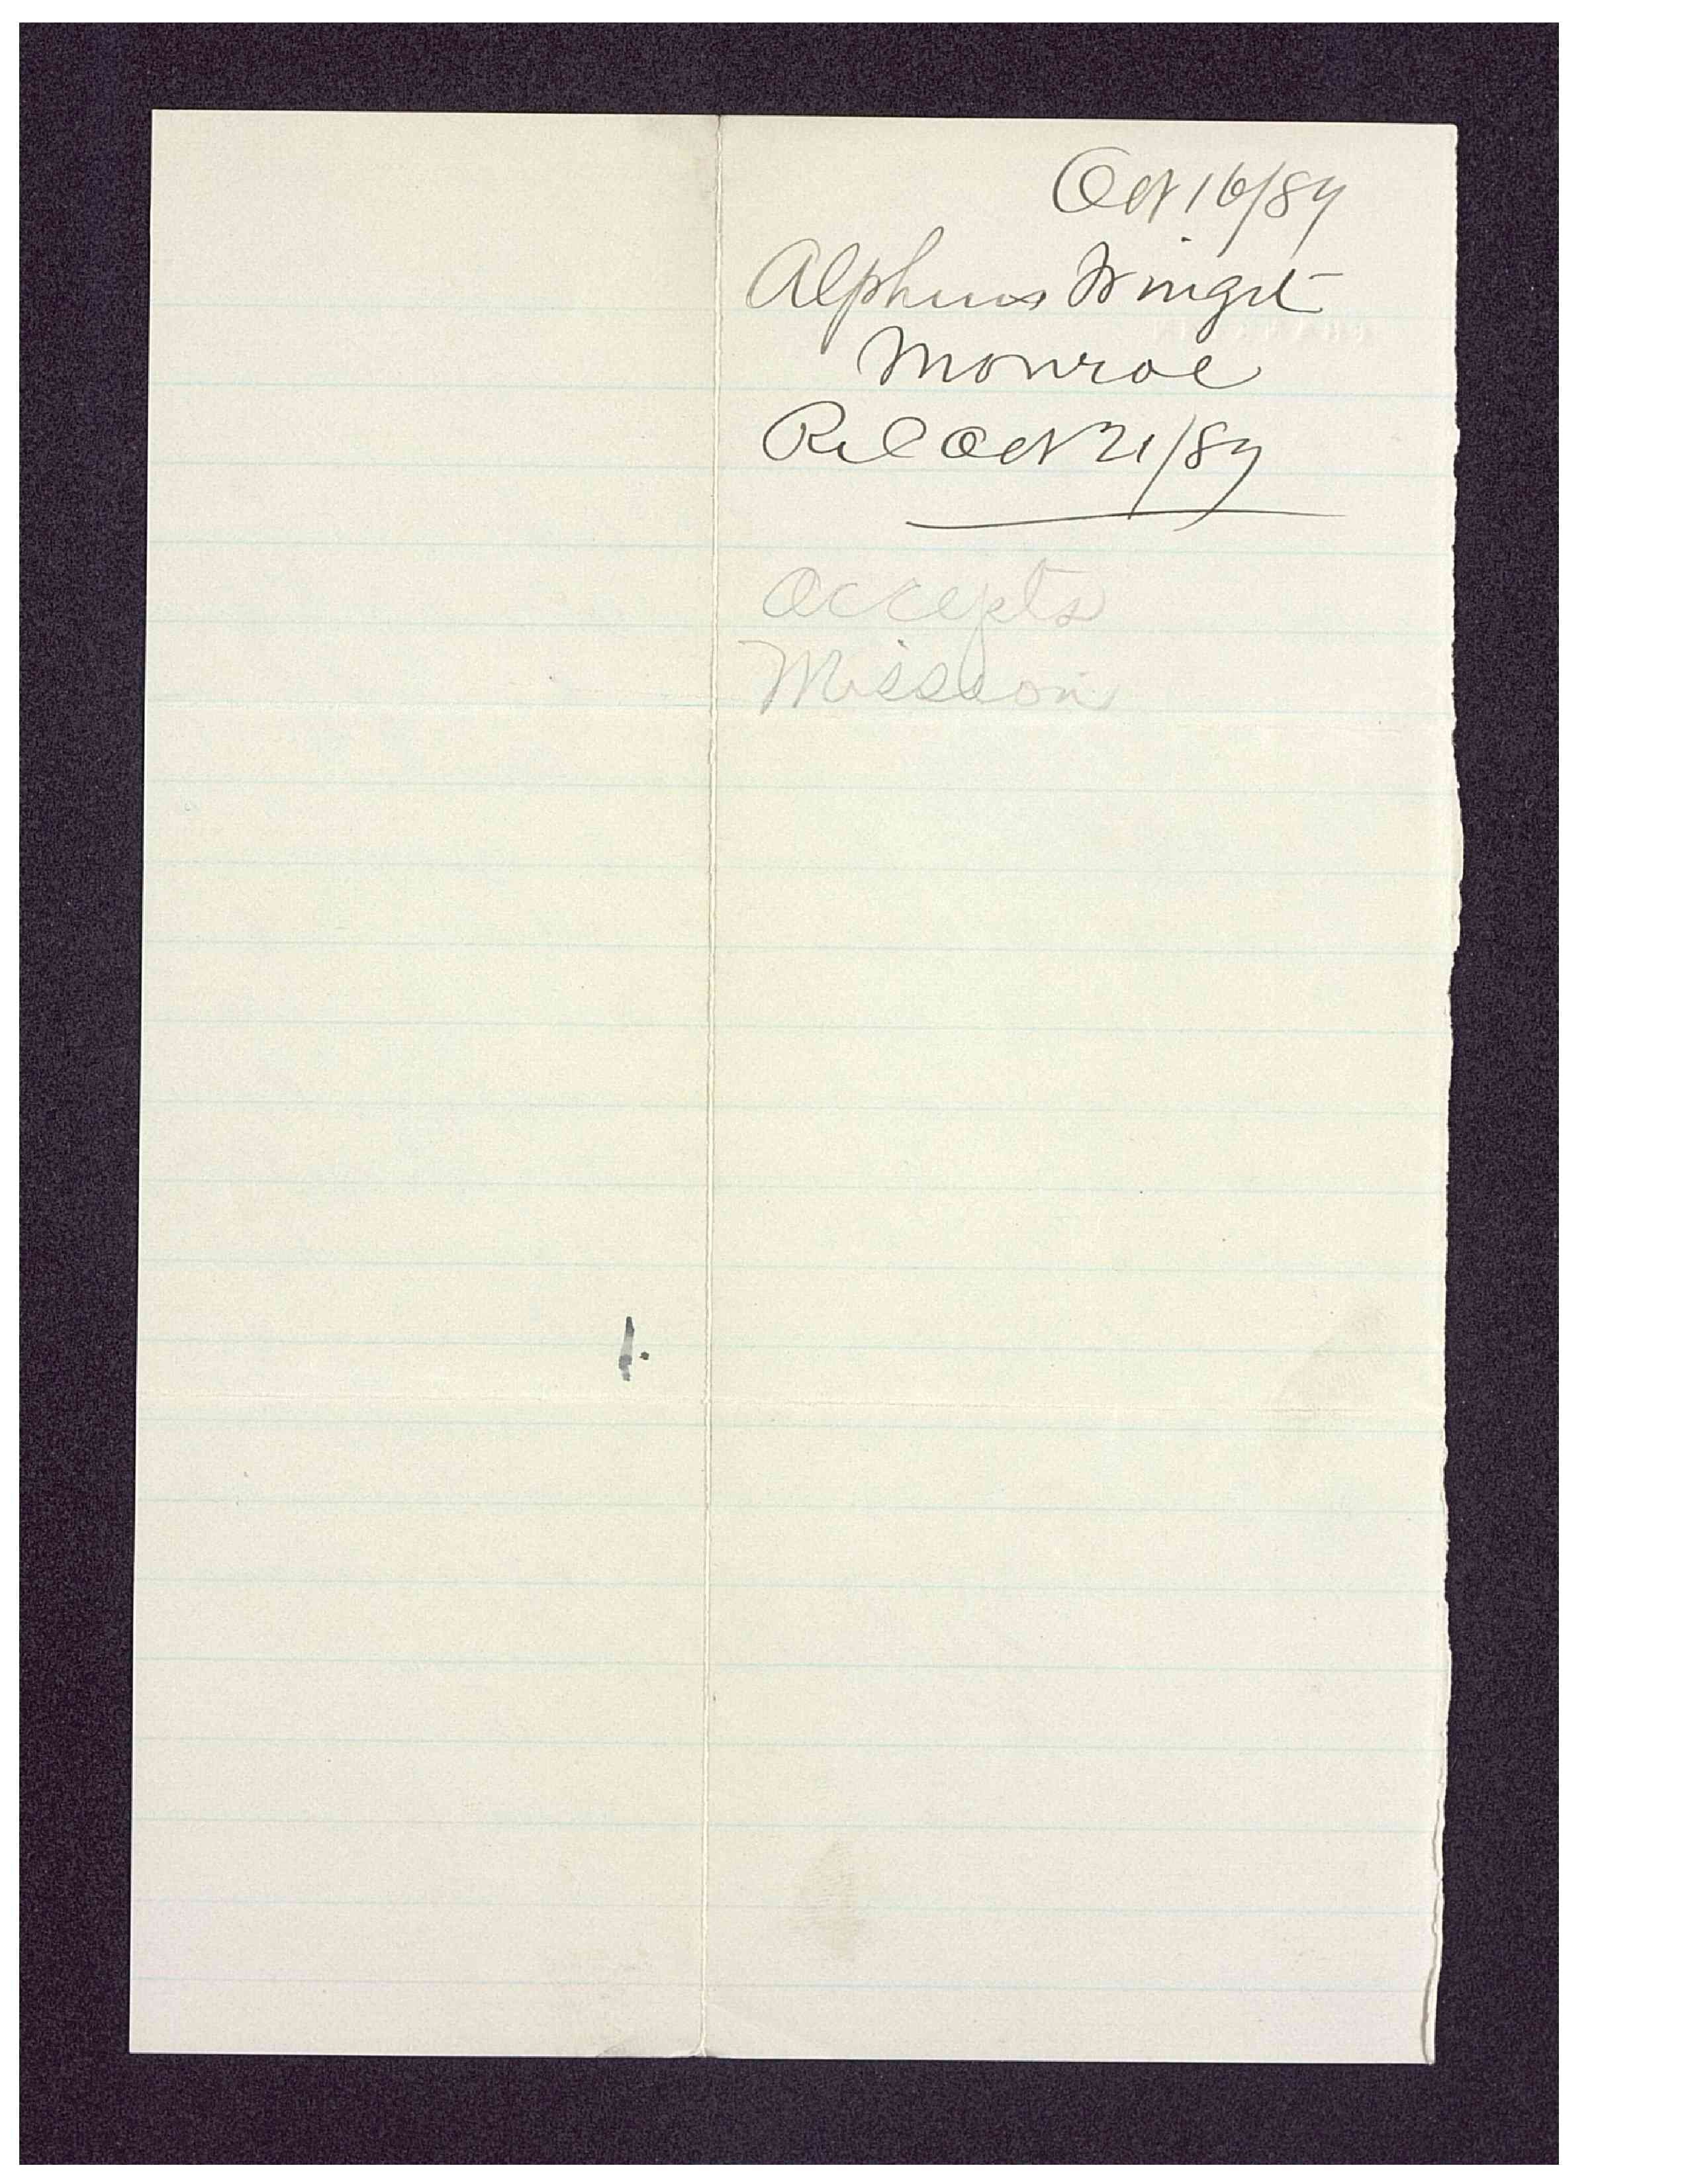 Oct 16/89
Alpheus Winget
Monroe
Rec Oct 21/89
accepts
Mission